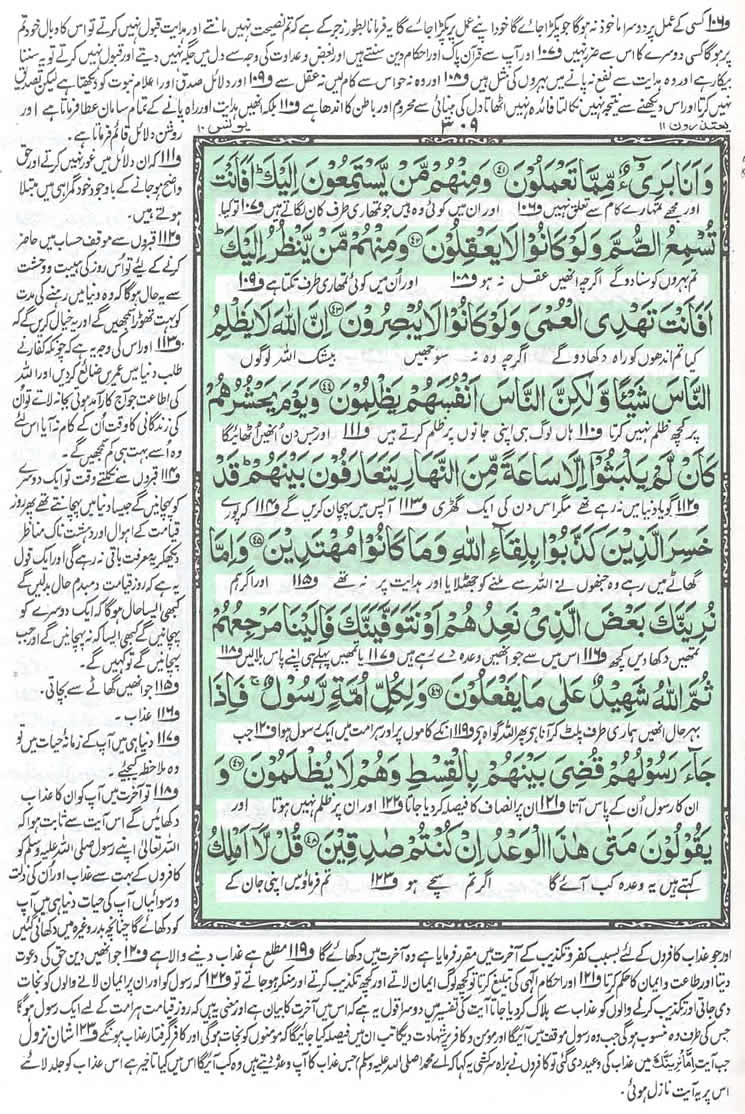 و۱۰۶ کسی کے عمل پر دوسرا ماخوذ نہ ہوگا جو پکڑا جائے گا خود اپنے عمل پر پکڑا جائے گا یہ فرمانا بطور زجر کے ہے کہ تم نصیحت نہیں مانتے اور ہدایت قبول نہیں کرتے تو اس کا وبال خود تم
پر ہوگا کسی دوسرے کا اس سے ضرر نہیں و۱۰۷ اور آپ سے قرآن پاک اور احکام دین سنتے ہیں اور بغض و عداوت کی وجہ سے دل میں جگہ نہیں دیتے اور قبول نہیں کرتے تو یہ سننا
بیکار ہے اور وہ ہدایت سے نفع نہ پانے میں بہروں کی مثل ہیں و۱۰۸ اور وہ نہ حواس سے کام لیں نہ عقل سے و۱۰۹ اور دلائل صدق اور اعلام نبوت کو دیکھتا ہے لیکن تصدیق
نہیں کرتا اور اس دیکھنے سے نتیجہ نہیں نکالتا فائدہ نہیں اٹھاتا دل کی بینائی سے محروم اور باطن کا اندھا ہے و۱۱۰ بلکہ انھیں ہدایت اور راہ پانے کے تمام سامان عطا فرماتا ہے اور
روشن دلائل قائم فرماتا ہے۔
یعتذرون ۱۱
۳۰۹
یونس ۱۰
وَاَنَا بَرِیْٓءٌ مِّمَّا تَعْمَلُوْنَ ﴿۴۱﴾ وَمِنْهُمْ مَّنْ یَّسْتَمِعُوْنَ اِلَیْكَ ؕ اَفَاَنْتَ
اور مجھے تمہارے کام سے تعلق نہیں و۱۰۶ اور ان میں کوئی وہ ہیں جو تمہاری طرف کان لگاتے ہیں و۱۰۷ تو کیا
تُسْمِعُ الصُّمَّ وَلَوْ كَانُوْا لَا یَعْقِلُوْنَ ﴿۴۲﴾ وَمِنْهُمْ مَّنْ یَّنْظُرُ اِلَیْكَ ؕ
تم بہروں کو سنا دو گے اگرچہ انھیں عقل نہ ہو و۱۰۸ اور ان میں کوئی تمہاری طرف تکتا ہے و۱۰۹
اَفَاَنْتَ تَهْدِی الْعُمْیَ وَلَوْ كَانُوْا لَا یُبْصِرُوْنَ ﴿۴۳﴾ اِنَّ اللّٰهَ لَا یَظْلِمُ
کیا تم اندھوں کو راہ دکھا دو گے اگرچہ وہ نہ سوجھیں بیشک اللہ لوگوں
النَّاسَ شَیْـًٔا وَّلٰكِنَّ النَّاسَ اَنْفُسَهُمْ یَظْلِمُوْنَ ﴿۴۴﴾ وَیَوْمَ یَحْشُرُهُمْ
پر کچھ ظلم نہیں کرتا و۱۱۰ ہاں لوگ ہی اپنی جانوں پر ظلم کرتے ہیں و۱۱۱ اور جس دن انھیں اٹھائیگا
كَاَنْ لَّمْ یَلْبَثُوْۤا اِلَّا سَاعَةً مِّنَ النَّهَارِ یَتَعَارَفُوْنَ بَیْنَهُمْ ؕ قَدْ
و۱۱۲ گویا دنیا میں نہ رہے تھے مگر اس دن کی ایک گھڑی و۱۱۳ آپس میں پہچان کریں گے و۱۱۴ کہ پورے
خَسِرَ الَّذِیْنَ كَذَّبُوْا بِلِقَآءِ اللّٰهِ وَمَا كَانُوْا مُهْتَدِیْنَ ﴿۴۵﴾ وَاِمَّا
گھاٹے میں رہے وہ جنھوں نے اللہ سے ملنے کو جھٹلایا اور ہدایت پر نہ تھے و۱۱۵ اور اگر ہم
نُرِیَنَّكَ بَعْضَ الَّذِیْ نَعِدُهُمْ اَوْ نَتَوَفَّیَنَّكَ فَاِلَیْنَا مَرْجِعُهُمْ
تمہیں دکھا دیں کچھ و۱۱۶ اس میں سے جو انھیں وعدہ دے رہے ہیں و۱۱۷ یا تمہیں پہلے ہی اپنے پاس بلا لیں و۱۱۸
ثُمَّ اللّٰهُ شَهِیْدٌ عَلٰی مَا یَفْعَلُوْنَ ﴿۴۶﴾ وَلِكُلِّ اُمَّةٍ رَّسُوْلٌ ۚ فَاِذَا
بہر حال انھیں ہماری طرف پلٹ کر آنا ہے پھر اللہ گواہ ہے و۱۱۹ انکے کاموں پر اور ہر امت میں ایک رسول ہوا و۱۲۰ جب
جَآءَ رَسُوْلُهُمْ قُضِیَ بَیْنَهُمْ بِالْقِسْطِ وَهُمْ لَا یُظْلَمُوْنَ ﴿۴۷﴾ وَ
ان کا رسول ان کے پاس آتا و۱۲۱ ان پر انصاف کا فیصلہ کر دیا جاتا و۱۲۲ اور ان پر ظلم نہیں ہوتا اور
یَقُوْلُوْنَ مَتٰی هٰذَا الْوَعْدُ اِنْ كُنْتُمْ صٰدِقِیْنَ ﴿۴۸﴾ قُلْ لَّاۤ اَمْلِكُ
کہتے ہیں یہ وعدہ کب آئے گا اگر تم سچے ہو و۱۲۳ تم فرماؤ میں اپنی جان کے
و۱۱۱ کہ ان دلائل میں غور نہیں کرتے اور حق
واضح ہو جانے کے باوجود خود گمراہی میں مبتلا
ہوتے ہیں۔
و۱۱۲ قبروں سے موقف حساب میں حاضر
کرنے کے لیے تو اس روز کی ہیبت و وحشت
سے یہ حال ہوگا کہ وہ دنیا میں رہنے کی مدت
کو بہت تھوڑا سمجھیں گے اور یہ خیال کریں گے کہ
و۱۱۳ اور اس کی وجہ یہ ہے کہ چونکہ کفار نے
طلب دنیا میں عمریں ضائع کردیں اور اللہ
کی اطاعت جو آج کار آمد ہوتی بجا نہ لائے تو ان
کی زندگانی کا وقت ان کے کام نہ آیا اس لئے
وہ اسے بہت ہی کم سمجھیں گے۔
و۱۱۴ قبروں سے نکلتے وقت تو ایک دوسرے
کو پہچانیں گے جیسا دنیا میں پہچانتے تھے پھر روز
قیامت کے اہوال اور دہشت ناک مناظر
دیکھ کر یہ معرفت باقی نہ رہے گی اور ایک قول
یہ ہے کہ روز قیامت دمبدم حال بدلیں گے
کبھی ایسا حال ہوگا کہ ایک دوسرے کو
پہچانیں گے کبھی ایسا کہ نہ پہچانیں گے اور جب
پہچانیں گے تو کہیں گے۔
و۱۱۵ جو انھیں گھاٹے سے بچاتی۔
و۱۱۶ عذاب۔
و۱۱۷ دنیا ہی میں آپ کے زمانہ حیات میں تو
وہ ملاحظہ کیجئے
و۱۱۸ تو آخرت میں آپ کو ان کا عذاب
دکھائیں گے اس آیت سے ثابت ہوا کہ
اللہ تعالیٰ اپنے رسول صلی اللہ علیہ وسلم کو
کافروں کے بہت سے عذاب اور ان کی ذلت
و رسوائیاں آپ کی حیات دنیا ہی میں آپ
کو دکھائے گا چنانچہ بدر وغیرہ میں دکھائی گئیں
اور جو عذاب کافروں کے لئے بسبب کفر و تکذیب کے آخرت میں مقرر فرمایا ہے وہ آخرت میں دکھائے گا و۱۱۹ مطلع ہے عذاب دینے والا ہے و۱۲۰ جو انھیں دین حق کی دعوت
دیتا اور طاعت و ایمان کا حکم کرتا و۱۲۱ اور احکام الٰہی کی تبلیغ کرتا تو کچھ لوگ ایمان لاتے اور کچھ تکذیب کرتے اور منکر ہو جاتے تو و۱۲۲ کہ رسول کو اور ان پر ایمان لانے والوں کو نجات
دی جاتی اور تکذیب کرنے والوں کو عذاب سے ہلاک کر دیا جاتا آیت کی تفسیر میں دوسرا قول یہ ہے کہ اس میں آخرت کا بیان ہے اور معنی یہ ہیں کہ روز قیامت ہر امت کے لیے ایک رسول ہوگا
جس کی طرف وہ منسوب ہوگی جب وہ رسول موقف میں آئیگا اور مومن و کافر پر شہادت دیگا تب ان میں فیصلہ کیا جائیگا کہ مومنوں کو نجات ہوگی اور کافر گرفتار عذاب ہونگے و۱۲۳ شان نزول
جب آیت اِمَّا نُرِیَنَّكَ میں عذاب کی وعید دی گئی تو کافروں نے براہ سرکشی یہ کہا کہ اے محمد صلی اللہ علیہ وسلم جس عذاب کا آپ وعدہ دیتے ہیں وہ کب آئیگا اس میں کیا تاخیر ہے اس عذاب کو جلد لائے
اس پر یہ آیت نازل ہوئی۔